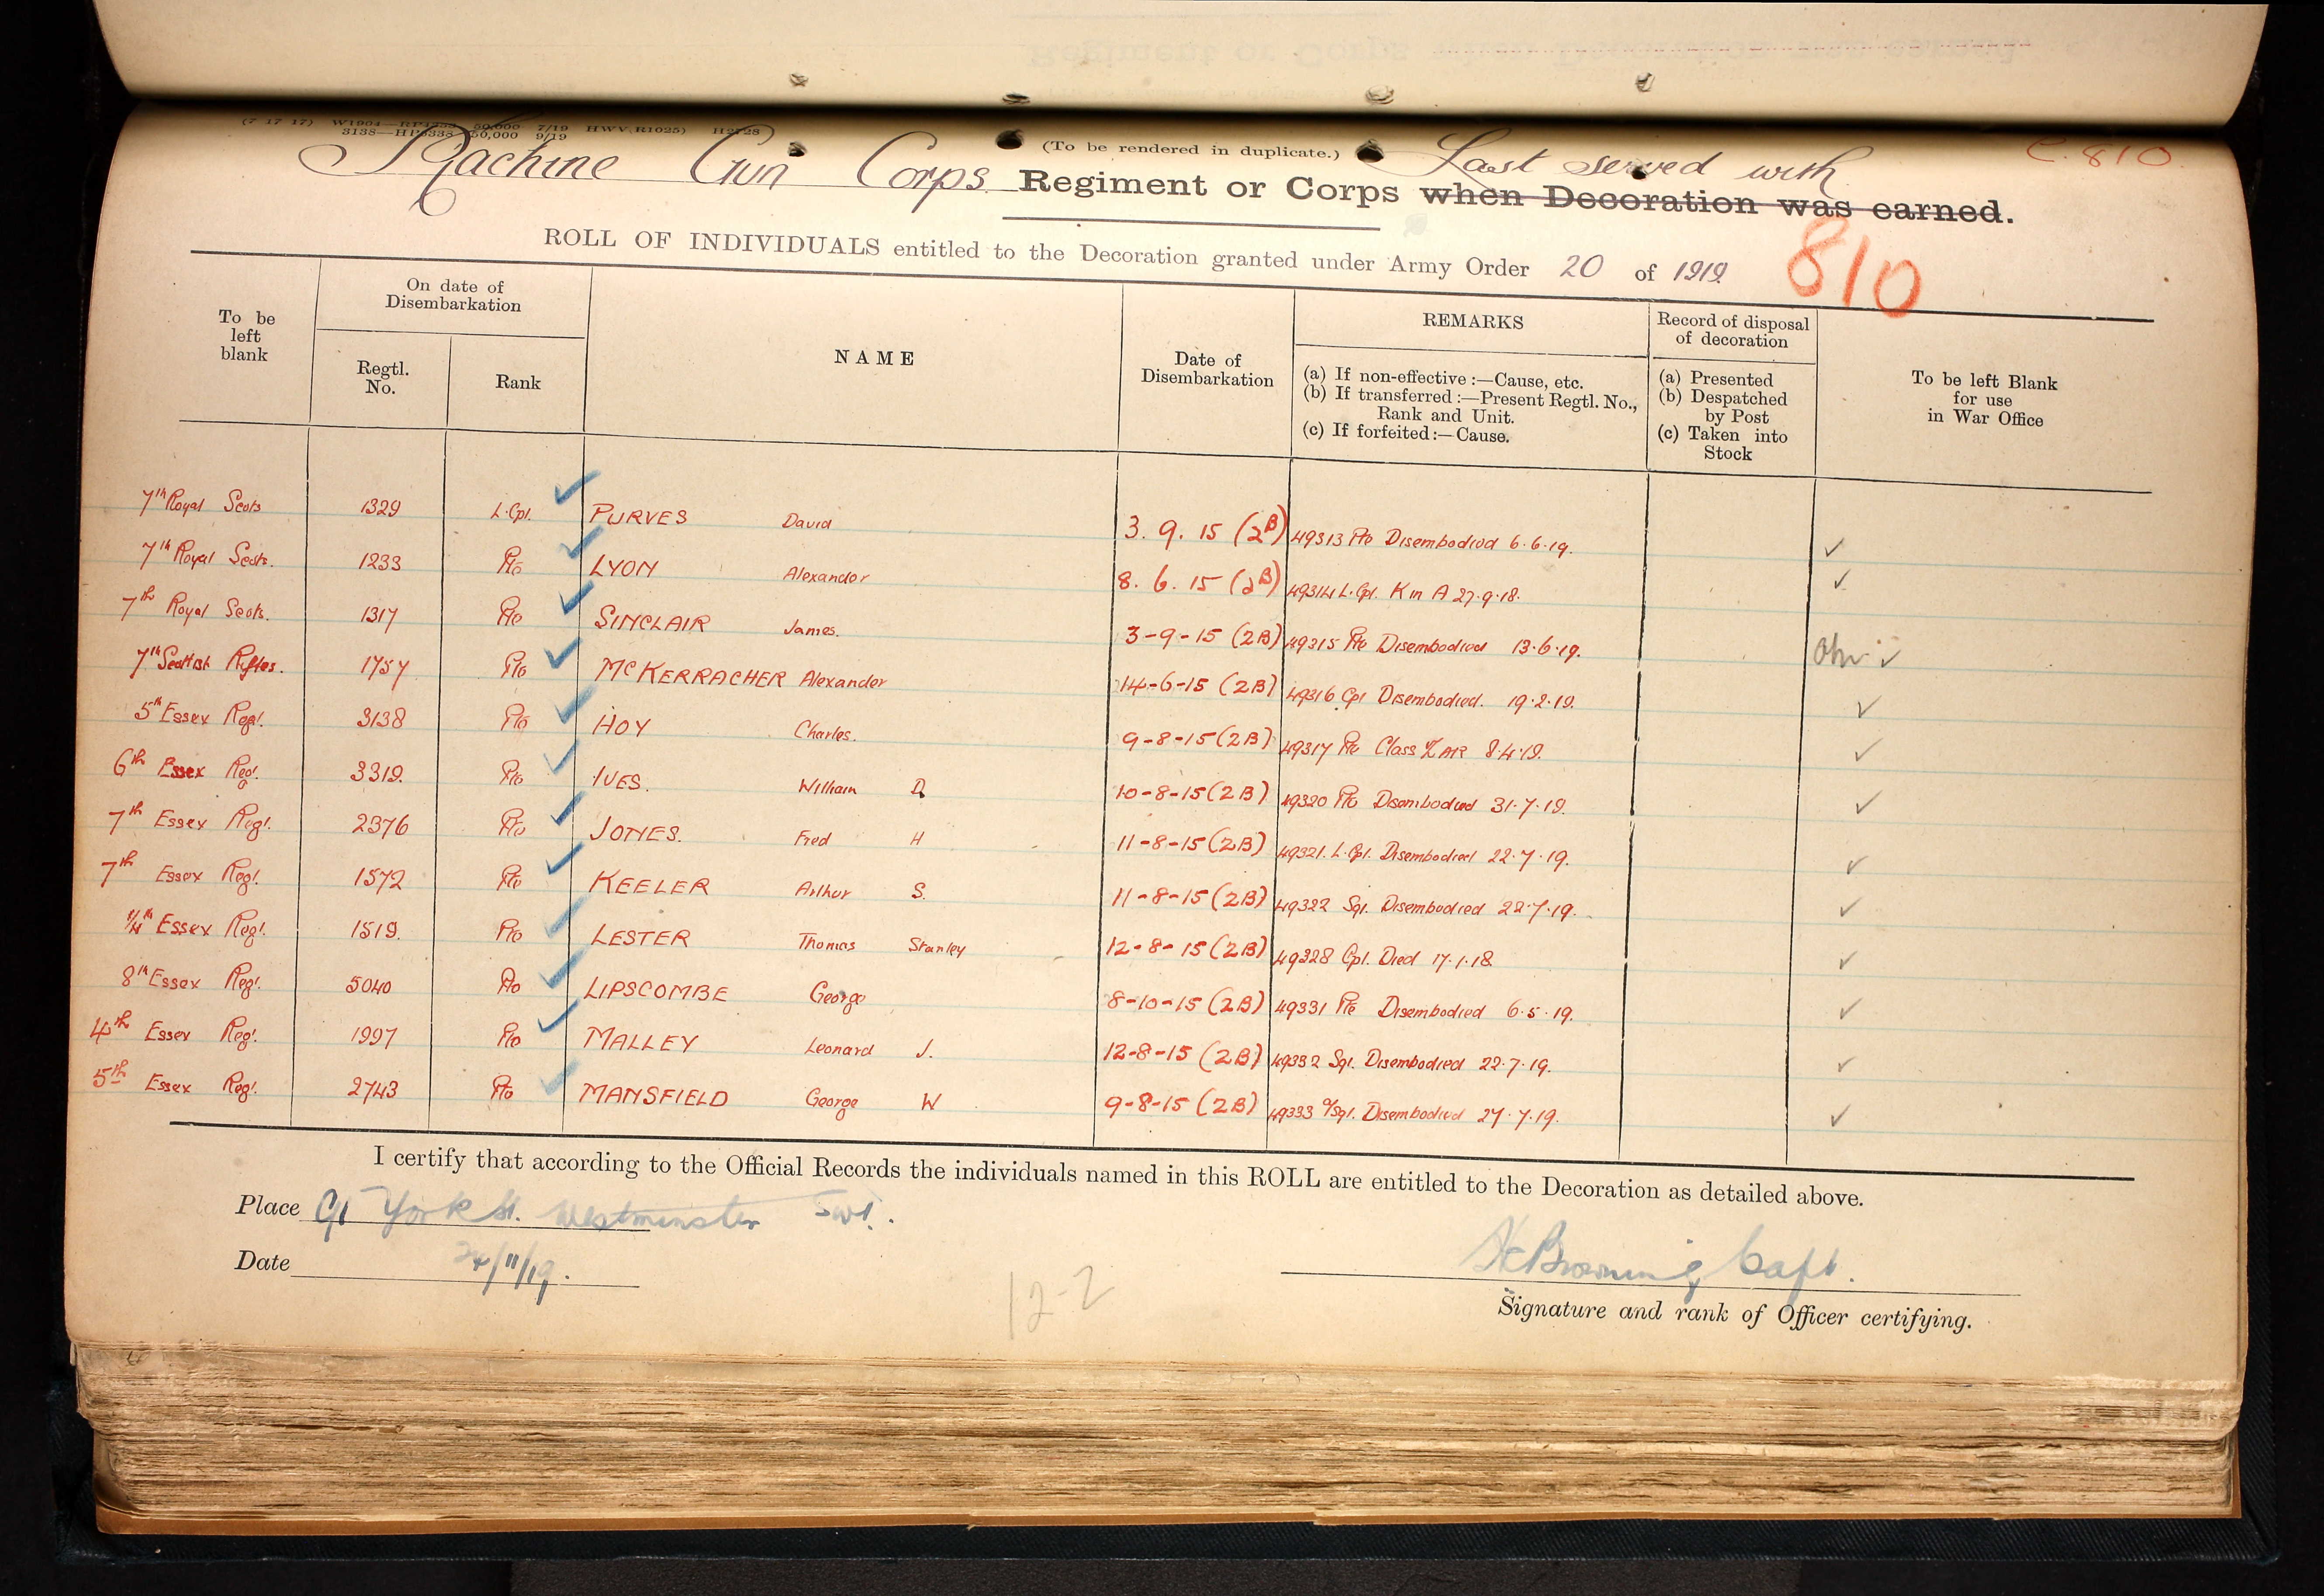 (7 17 17) W1904—RP4333 50,000 7/19 HWV(R1025) H2728
3138—HP5338 50,000 9/19
(To be rendered in duplicate.)
C. 810.
Last served with
Machine Gun Corps Regiment or Corps when Decoration was earned.
ROLL OF INDIVIDUALS entitled to the Decoration granted under Army Order 20 of 1919.
810
To be left blank
On date of Disembarkation
Regtl. No.
Rank
NAME
Date of Disembarkation
REMARKS
(a) If non-effective :—Cause, etc.
(b) If transferred :—Present Regtl. No., Rank and Unit.
(c) If forfeited :—Cause.
Record of disposal of decoration
(a) Presented
(b) Despatched by Post
(c) Taken into Stock
To be left Blank for use in War Office
7th Royal Scots 1329 L.Cpl. PURVES David 3. 9. 15 (2B) 49313 Pte Disembodied 6.6.19.
7th Royal Scots. 1233 Pte LYON Alexander 8. 6. 15 (2B) 49314 L.Cpl. K in A 27.9.18.
7th Royal Scots. 1317 Pte SINCLAIR James. 3-9-15 (2B) 49315 Pte Disembodied 13.6.19.
7th Scottish Rifles. 1757 Pte McKERRACHER Alexander 14-6-15 (2B) 49316 Cpl Disembodied. 19.2.19.
5th Essex Regt. 3138 Pte HOY Charles. 9-8-15 (2B) 49317 Pte Class Z AR 8.4.19.
6th Essex Regt. 3319. Pte IVES. William D. 10-8-15 (2B) 49320 Pte Disembodied 31.7.19.
7th Essex Regt. 2376 Pte JONES. Fred H 11-8-15 (2B) 49321. L.Cpl. Disembodied 22.7.19.
7th Essex Regt. 1572 Pte KEELER Arthur S. 11-8-15 (2B) 49322 Sgt. Disembodied 22.7.19.
1/4th Essex Regt. 1519. Pte LESTER Thomas Stanley 12-8-15 (2B) 49328 Cpl. Died 17.1.18
8th Essex Regt. 5040 Pte LIPSCOMBE George 8-10-15 (2B) 49331 Pte Disembodied 6.5.19.
4th Essex Regt. 1997 Pte MALLEY Leonard J. 12-8-15 (2B) 49332 Sgt. Disembodied 22.7.19.
5th Essex Regt. 2743 Pte MANSFIELD George W 9-8-15 (2B) 49333 a/Sgt. Disembodied 27.7.19.
I certify that according to the Official Records the individuals named in this ROLL are entitled to the Decoration as detailed above.
Place 91 York St. Westminster SW1.
Date 24/11/19.
Browning Capt.
12-2
Signature and rank of Officer certifying.